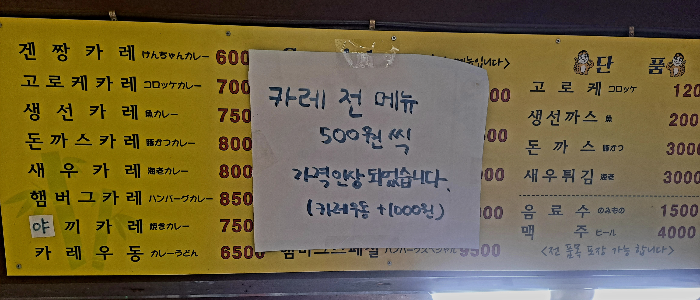 겐짱카레 けんちゃんカレー 600
고로케카레 コロッケカレー 700
생선카레 魚カレー 750
돈까스카레 豚かつカレー 800
새우카레 海老カレー 800
햄버그카레 ハンバーグカレー 850
야끼카레 焼きカレー 750
카레우동 カレーうどん 6500
카레 전 메뉴
500원 씩
가격인상 되었습니다.
(카레우동 +1000원)
ハンバーグスペシャル 9500
단품
고로케 コロッケ 120
생선까스 魚 200
돈까스 豚かつ 3000
새우튀김 海老 3000
음료수 のみもの 1500
맥주 ビール 4000
<전 품목 포장 가능 합니다>